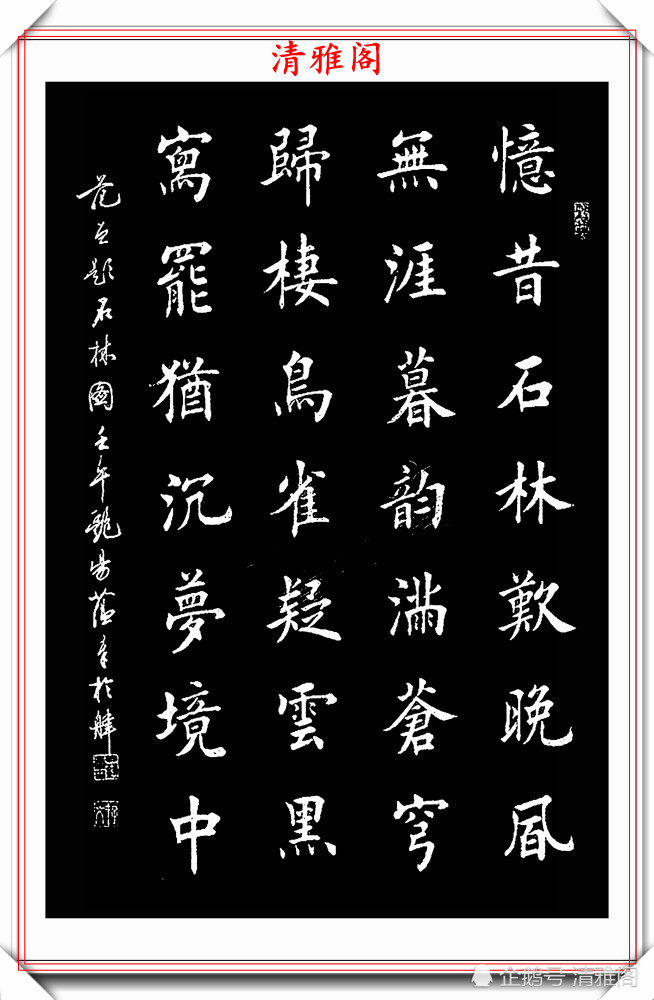 清雅阁
憶昔石林歎晚凬
無涯暮韵滿蒼穹
歸棲鳥雀疑雲黑
寫罷猶沉夢境中
題石林圖壬午於
企鹅号 清雅阁